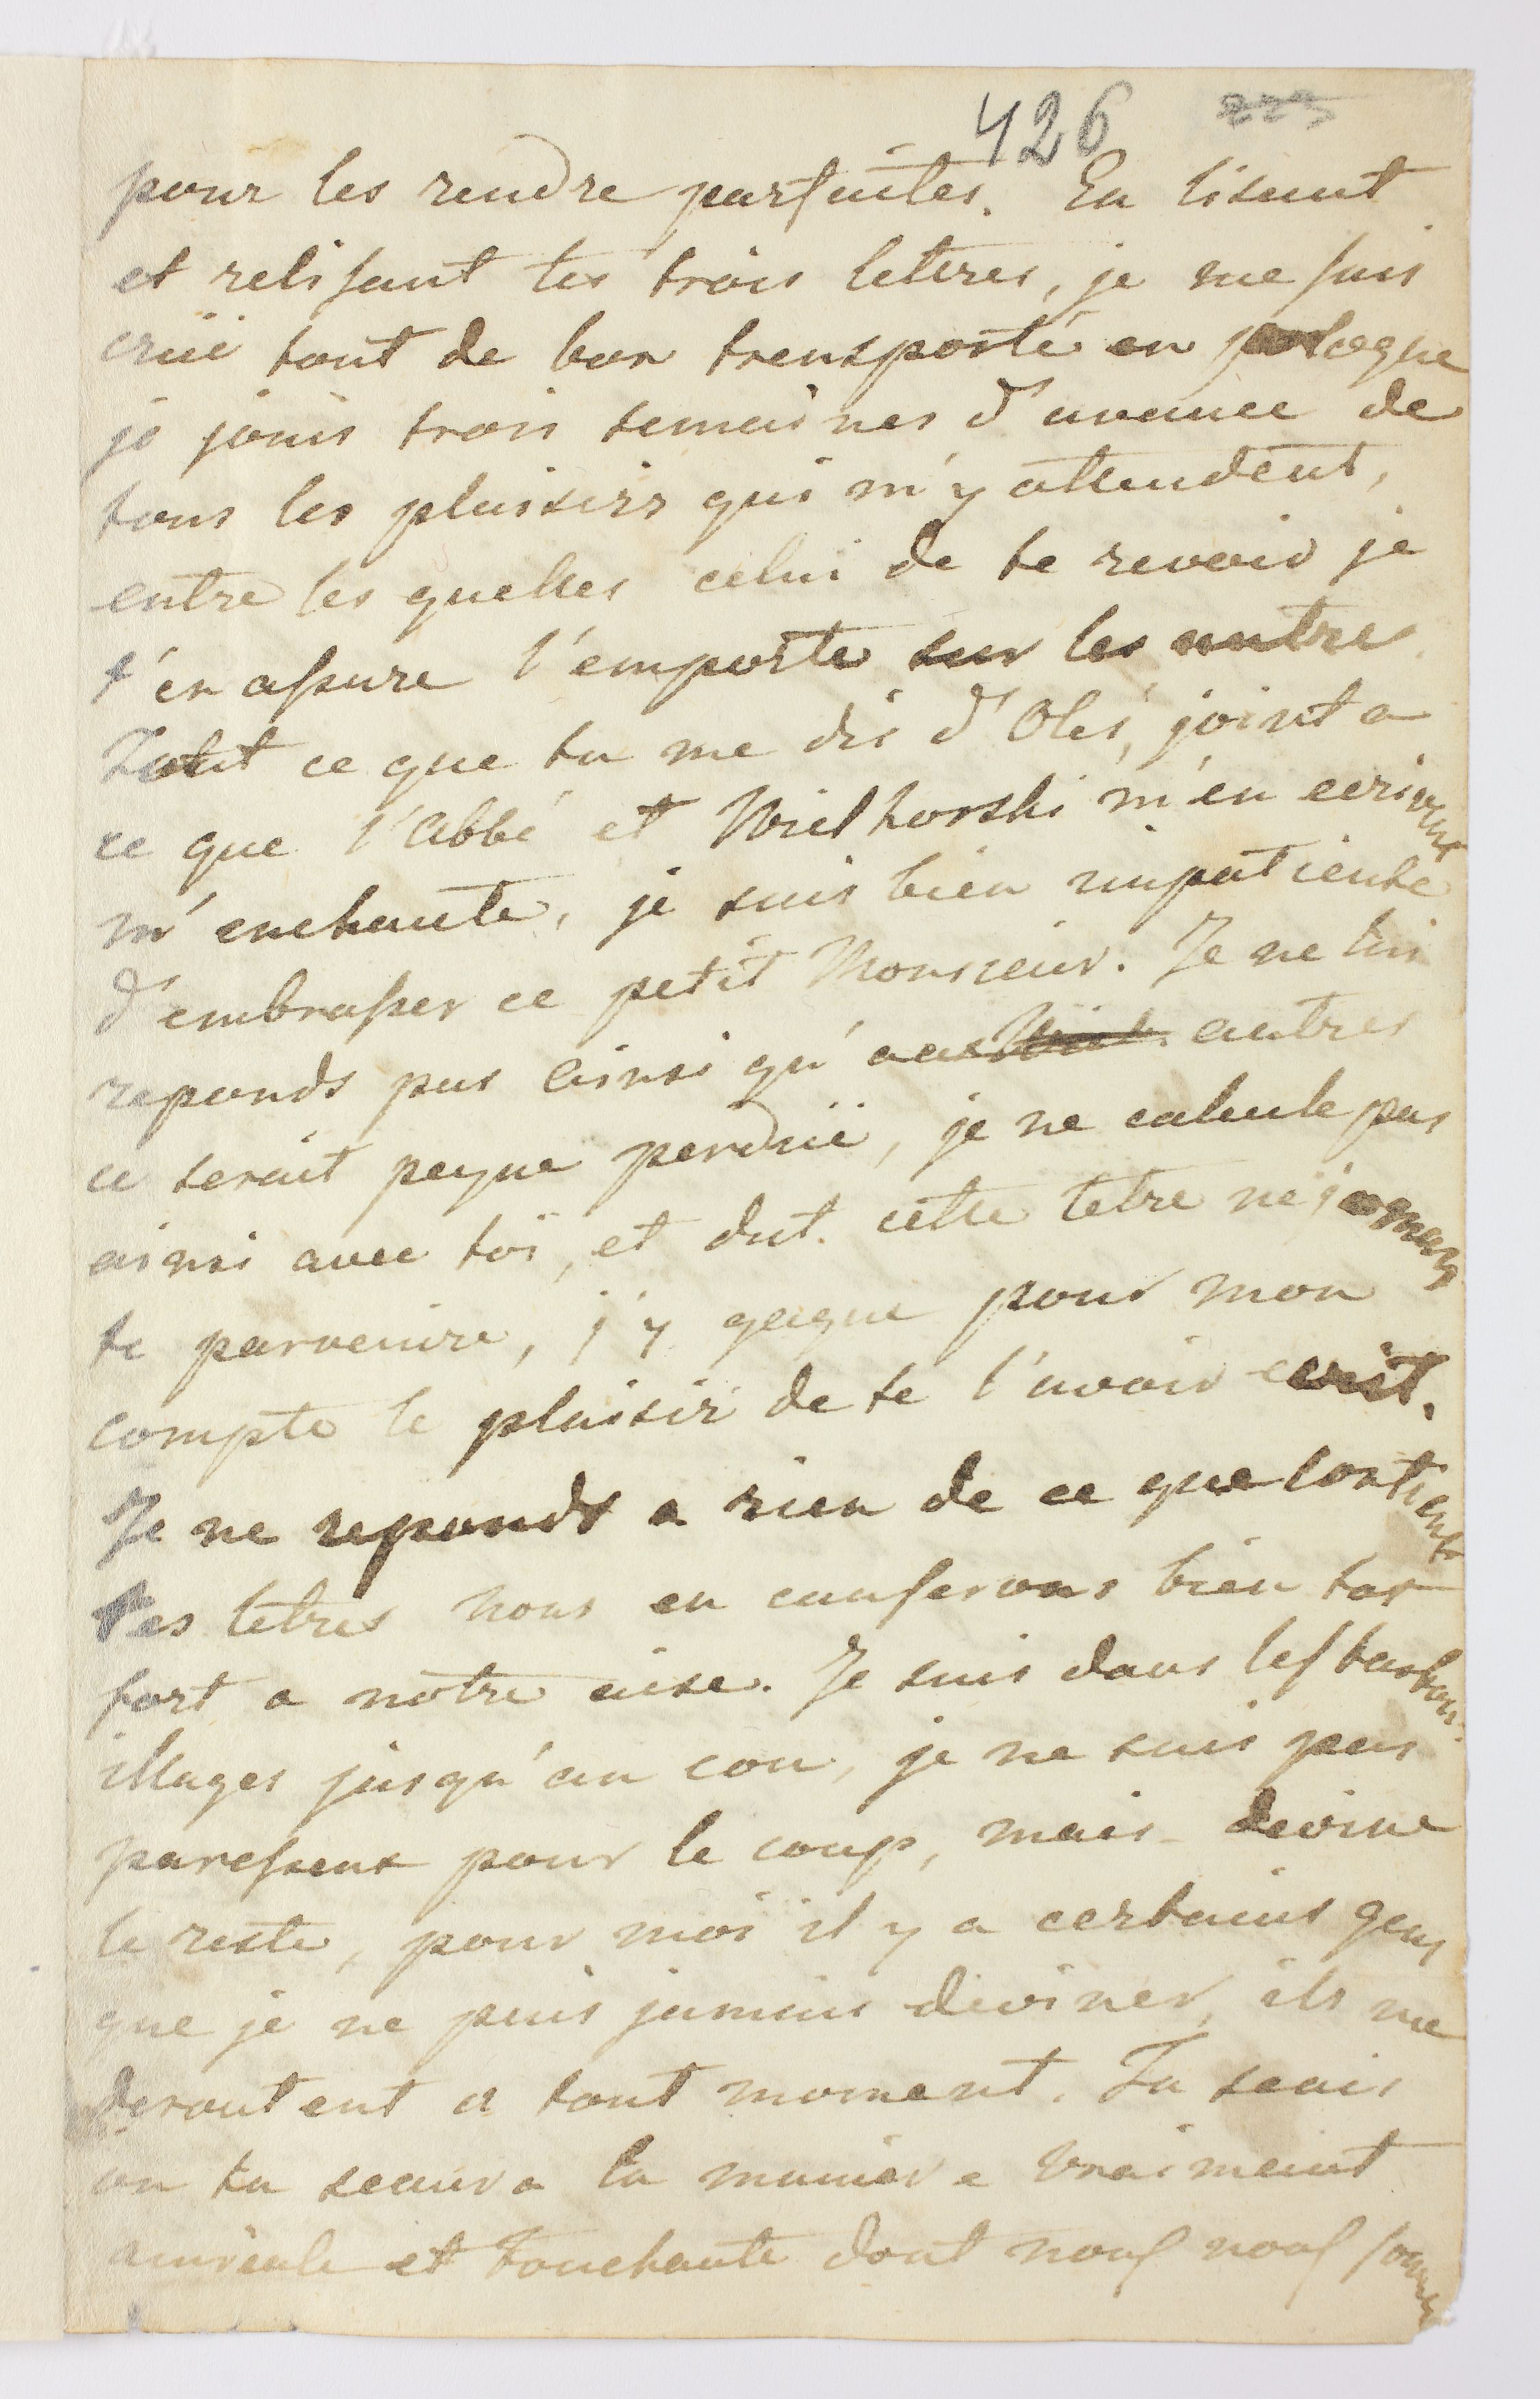 426
pour les rendre parfaites. En lisant
et relisant tes trois lettres, je me suis
crüe tout de bon transporté en pologne
je jouis trois semaines d'avance de
tous les plaisirs qui m'y attendent,
entre les quelles celui de te revoir je
t'en assure l'emporte sur les autres.
Tout ce que tu me dis d'Oles, joint a
ce que l'Abbé et Wielhorski m'en ecrivent
m'enchante, je suis bien impatiente
d'embrasser ce petit Monsieur. Je ne lui
reponds pas ainsi qu'aux autres
ce serait peyne perdüe, je ne calcule pas
ainsi avec toi, et dut cette lettre ne jamais
te parvenire, j'y gagne pour mon
compte le plaisir de te l'avoir ecrit.
Je ne reponds a rien de ce que contient
tes lettres nous en causerons bien tot
fort a notre aise. Je suis dans les barbou-
illages jusqu'au cou, je ne suis pas
paresseux pour le coup, mais devine
le reste, pour moi il y a certains gens
que je ne puis jamais deviner, ils me
deroutent a tout moment. Tu scais
ou tu scaura la maniere vraiment
amicale et touchante dont nous nous sommes